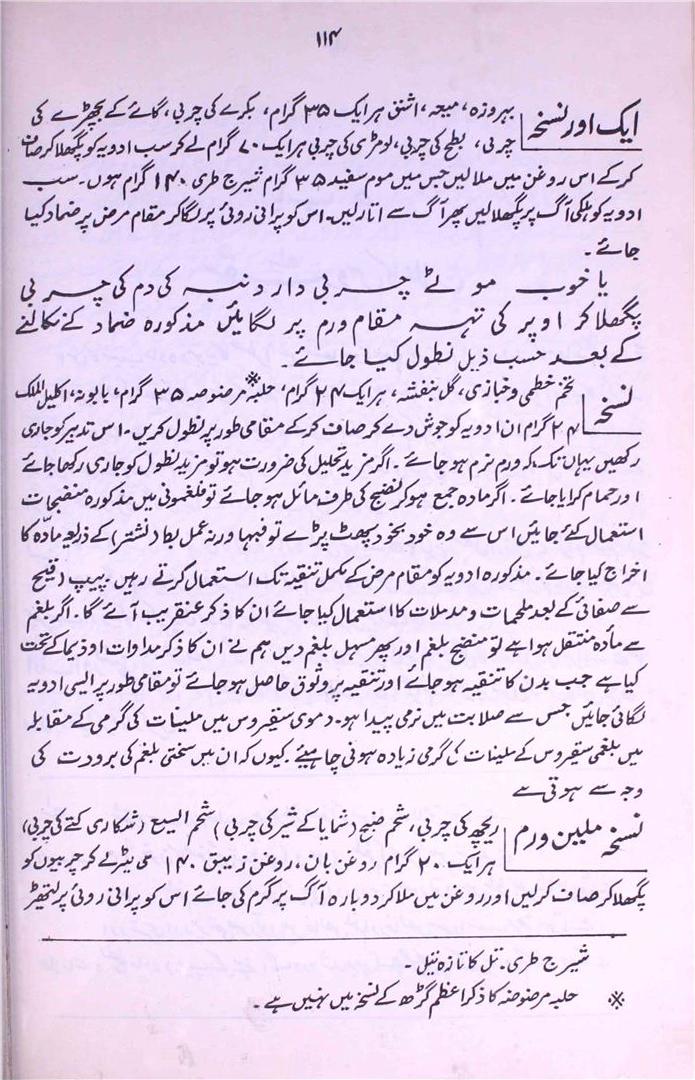 ۱۱۴
ایک اور نسخہ بہروزہ، میعہ، اشنق ہر ایک ۳۵ گرام، بکرے کی چربی، گائے کے بچھڑے کی
چربی، بطخ کی چربی، لومڑی کی چربی ہر ایک ۷۰ گرام لے کر سب ادویہ کو پگھلا کر صاف
کر کے اس روغن میں ملا لیں جس میں موم سفید ۳۵ گرام شیرج طری ۱۴۰ گرام ہوں۔ سب
ادویہ کو ہلکی آگ پر پگھلا لیں پھر آگ سے اتار لیں۔ اس کو پرانی روئی پر لگا کر مقام مرض پر ضماد کیا
جائے۔
یا خوب موٹے چربی دار دنبہ کی دم کی چربی
پگھلا کر اوپر کی تہہ مقام ورم پر لگائیں مذکورہ ضماد کے نکالنے
کے بعد حسب ذیل نطول کیا جائے۔
نسخہ تخم خطمی و خبازی، گل بنفشہ، ہر ایک ۲۴ گرام، حلبہ※ مرضوضہ ۳۵ گرام، بابونہ، اکلیل الملک
۲۴ گرام ان ادویہ کو جوش دے کر صاف کر کے مقامی طور پر نطول کریں۔ اس تدبیر کو جاری
رکھیں یہاں تک کہ ورم نرم ہو جائے۔ اگر مزید تحلیل کی ضرورت ہو تو مزید نطول کو جاری رکھا جائے
اور حمام کرایا جائے۔ اگر مادہ جمع ہو کر نضج کی طرف مائل ہو جائے تو فلغمونی میں مذکورہ منضجات
استعمال کئے جائیں اس سے وہ خود بخود پھٹ پڑے تو فبہا ورنہ عمل بط (نشتر) کے ذریعہ مادّہ کا
اخراج کیا جائے۔ مذکورہ ادویہ کو مقام مرض کے مکمل تنقیہ تک استعمال کرتے رہیں۔ پیپ (قیح
سے صفائی کے بعد ملحمات و مدملات کا استعمال کیا جائے ان کا ذکر عنقریب آئے گا۔ اگر بلغم
سے مادّہ منتقل ہوا ہے تو منضج بلغم اور پھر مسہل بلغم دیں ہم نے ان کا ذکر مداوات اوذیما کے تحت
کیا ہے جب بدن کا تنقیہ ہو جائے اور تنقیہ پر وثوق حاصل ہو جائے تو مقامی طور پر ایسی ادویہ
لگائی جائیں جس سے صلابت میں نرمی پیدا ہو۔ دموی سقیروس میں ملینات کی گرمی کے مقابلہ
میں بلغمی سقیروس کے ملینات کی گرمی زیادہ ہونی چاہیئے۔ کیوں کہ ان میں سختی بلغم کی برودت کی
وجہ سے ہوتی ہے
نسخہ ملین ورم ریچھ کی چربی، شحم ضبع ( کے شیر کی چربی) شحم السبع (شکاری کتے کی چربی)
ہر ایک ۲۰ گرام روغن بان، روغن زیبق ۱۴۰ لے کر چربیوں کو
پگھلا کر صاف کر لیں اور روغن میں ملا کر دوبارہ آگ پر گرم کی جائے اس کو پرانی روئی پر لتھیڑ
شیرج طری۔ تل کا تازہ تیل۔
※ حلبہ مرضوضہ کا ذکر اعظم گڑھ کے نسخہ میں نہیں ہے۔